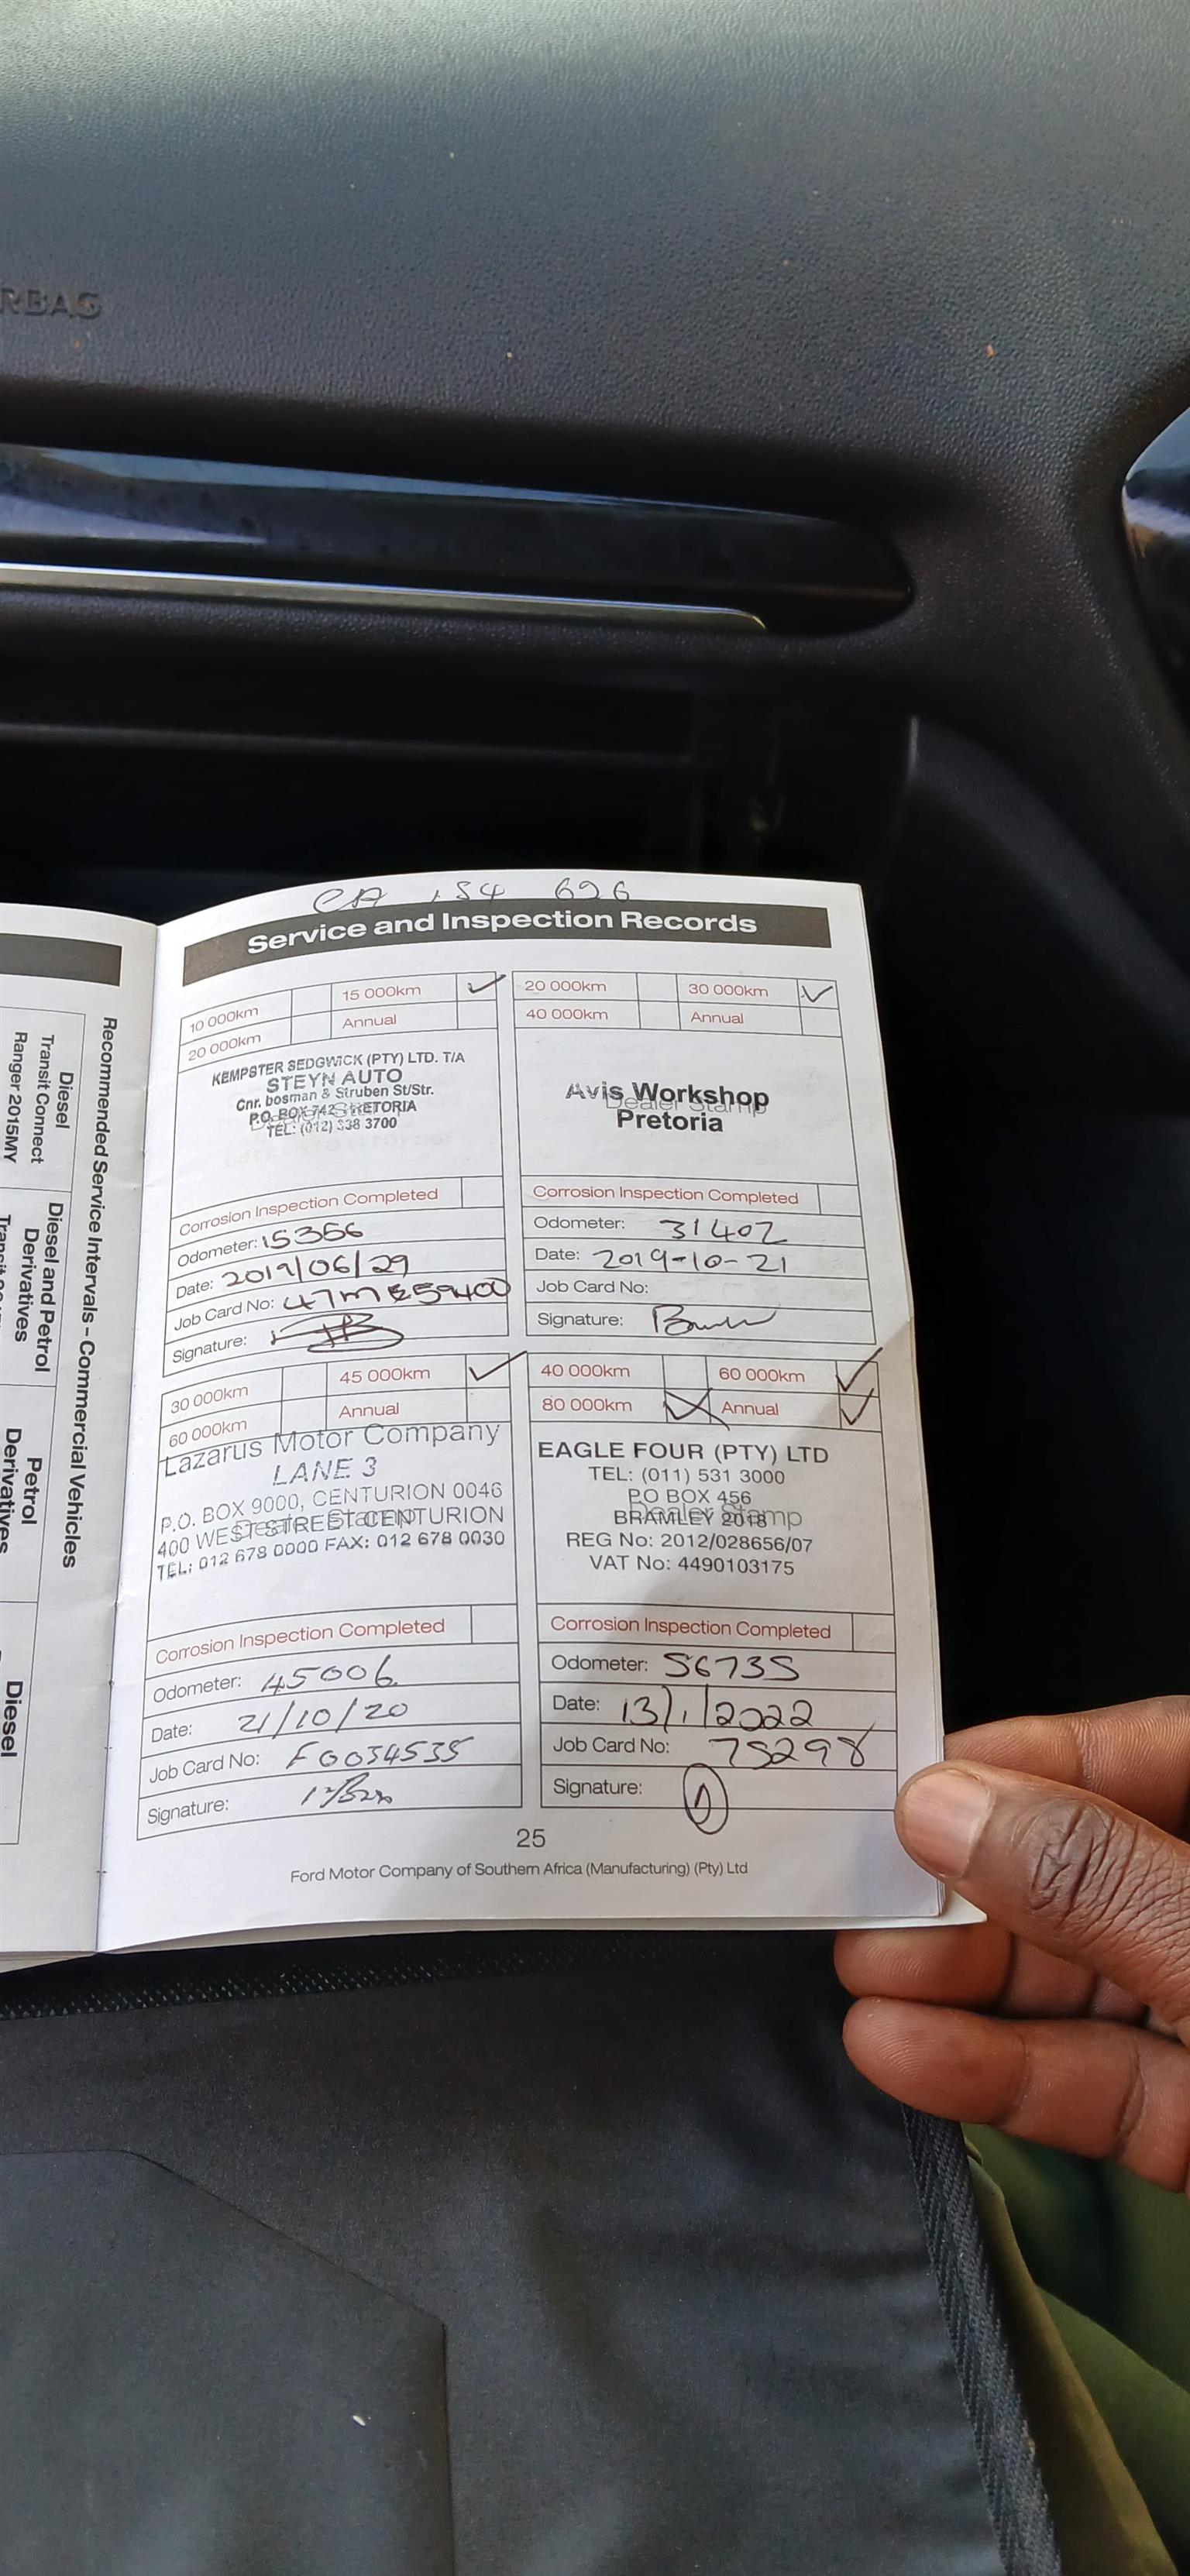 RBAG
Recommended Service Intervals - Commercial Vehicles
Diesel
Transit Connect
Ranger 2015MY
Diesel and Petrol
Derivatives
Petrol
Derivatives
Diesel
CA 154 696
Service and Inspection Records
10 000km 15 000km ✓
20 000km Annual
KEMPSTER SEDGWICK (PTY) LTD. T/A
STEYN AUTO
Cnr. bosman & Struben St/Str.
P.O. BOX 742 PRETORIA
TEL: (012) 338 3700
Corrosion Inspection Completed
Odometer: 15356
Date: 2019/06/29
Job Card No:
Signature:
20 000km 30 000km ✓
40 000km Annual
Dealer Stamp
Avis Workshop
Pretoria
Corrosion Inspection Completed
Odometer: 31402
Date: 2019-10-21
Job Card No:
Signature:
30 000km 45 000km ✓
60 000km Annual
Lazarus Motor Company
LANE 3
P.O. BOX 9000, CENTURION 0046
Dealer Stamp
400 WEST STREET CENTURION
TEL: 012 678 0000 FAX: 012 678 0030
Corrosion Inspection Completed
Odometer: 45006
Date: 21/10/20
Job Card No: F0034535
Signature:
40 000km 60 000km ✓
80 000km Annual ✓
EAGLE FOUR (PTY) LTD
TEL: (011) 531 3000
PO BOX 456
Dealer Stamp
BRAMLEY 2018
REG No: 2012/028656/07
VAT No: 4490103175
Corrosion Inspection Completed
Odometer: 56735
Date: 13/1/2022
Job Card No: 75298
Signature:
25
Ford Motor Company of Southern Africa (Manufacturing) (Pty) Ltd